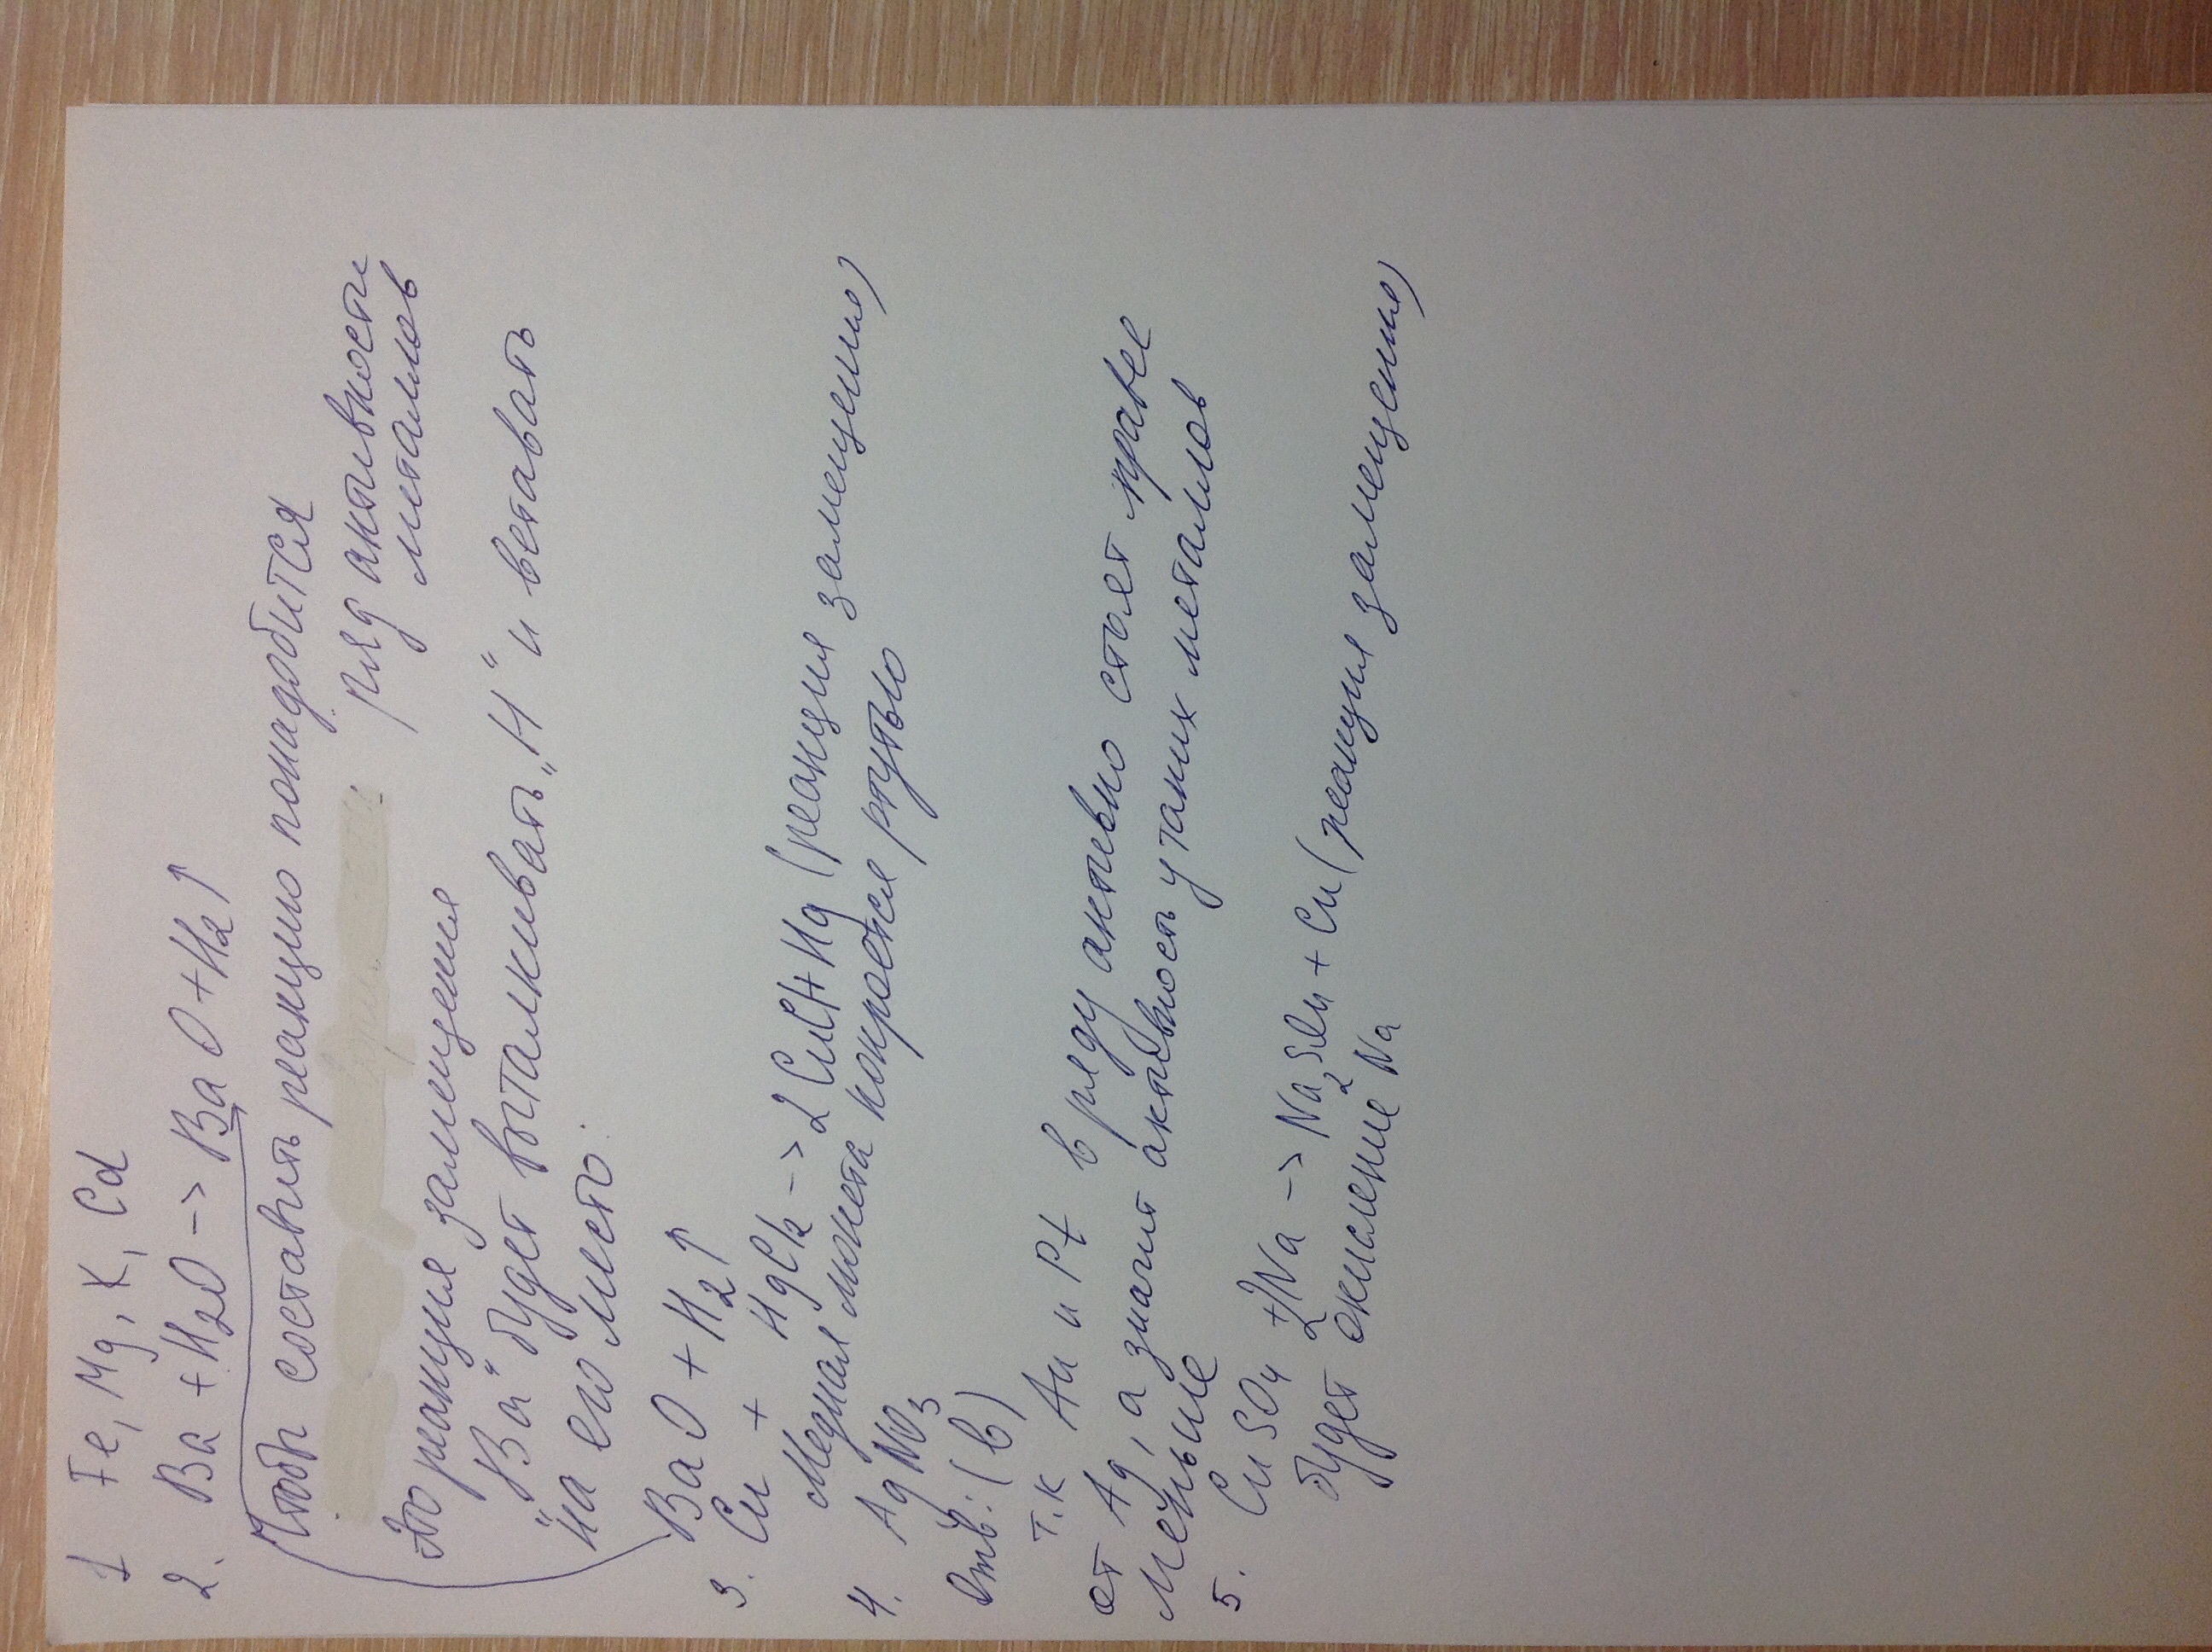 1 Fe, Mg, K, Cd
2. Ba + H2O -> BaO + H2↑
(Чтобы составить реакцию понадобится
ряд активности
металлов
Это реакция замещения
"Ba" будет выталкивать "H" и вставать
на его место.
BaO + H2↑
3. Cu + HgCl2 -> 2CuCl + Hg (реакция замещения)
Медная монета покроется ртутью
4. AgNO3
Отв.: (в)
т.к Au и Pt в ряду активно стоят правее
от Ag, а значит активность у таких металлов
меньше
5. CuSO4 + 2Na -> Na2SO4 + Cu (реакция замещению)
будет окисление Na